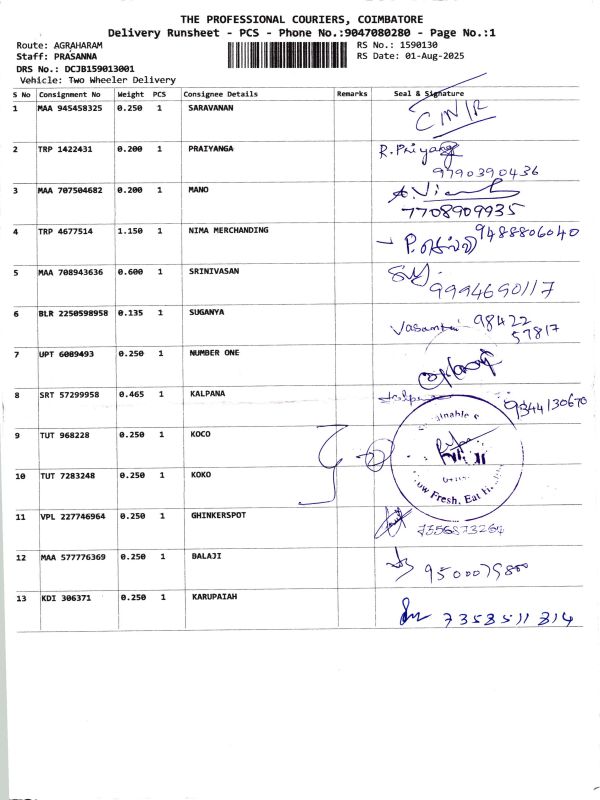 THE PROFESSIONAL COURIERS, COIMBATORE
Delivery Runsheet - PCS - Phone No.:9047080280 - Page No.:1
Route: AGRAHARAM RS No.: 1590130
Staff: PRASANNA RS Date: 01-Aug-2025
DRS No.: DCJB159013001
Vehicle: Two Wheeler Delivery
S No Consignment No Weight PCS Consignee Details Remarks Seal & Signature
1 MAA 945458325 0.250 1 SARAVANAN
2 TRP 1422431 0.200 1 PRAIYANGA R.Priyanga
9790390436
3 MAA 707504682 0.200 1 MANO
7708909935
4 TRP 4677514 1.150 1 NIMA MERCHANDING 9488806040
5 MAA 708943636 0.600 1 SRINIVASAN
9994690117
6 BLR 2250598958 0.135 1 SUGANYA Vasanthi 98422
57817
7 UPT 6089493 0.250 1 NUMBER ONE
8 SRT 57299958 0.465 1 KALPANA 9344130670
9 TUT 968228 0.250 1 KOCO
10 TUT 7283248 0.250 1 KOKO
Fresh, Eat
11 VPL 227746964 0.250 1 GHINKERSPOT
12 MAA 577776369 0.250 1 BALAJI
13 KDI 306371 0.250 1 KARUPAIAH 7358511814